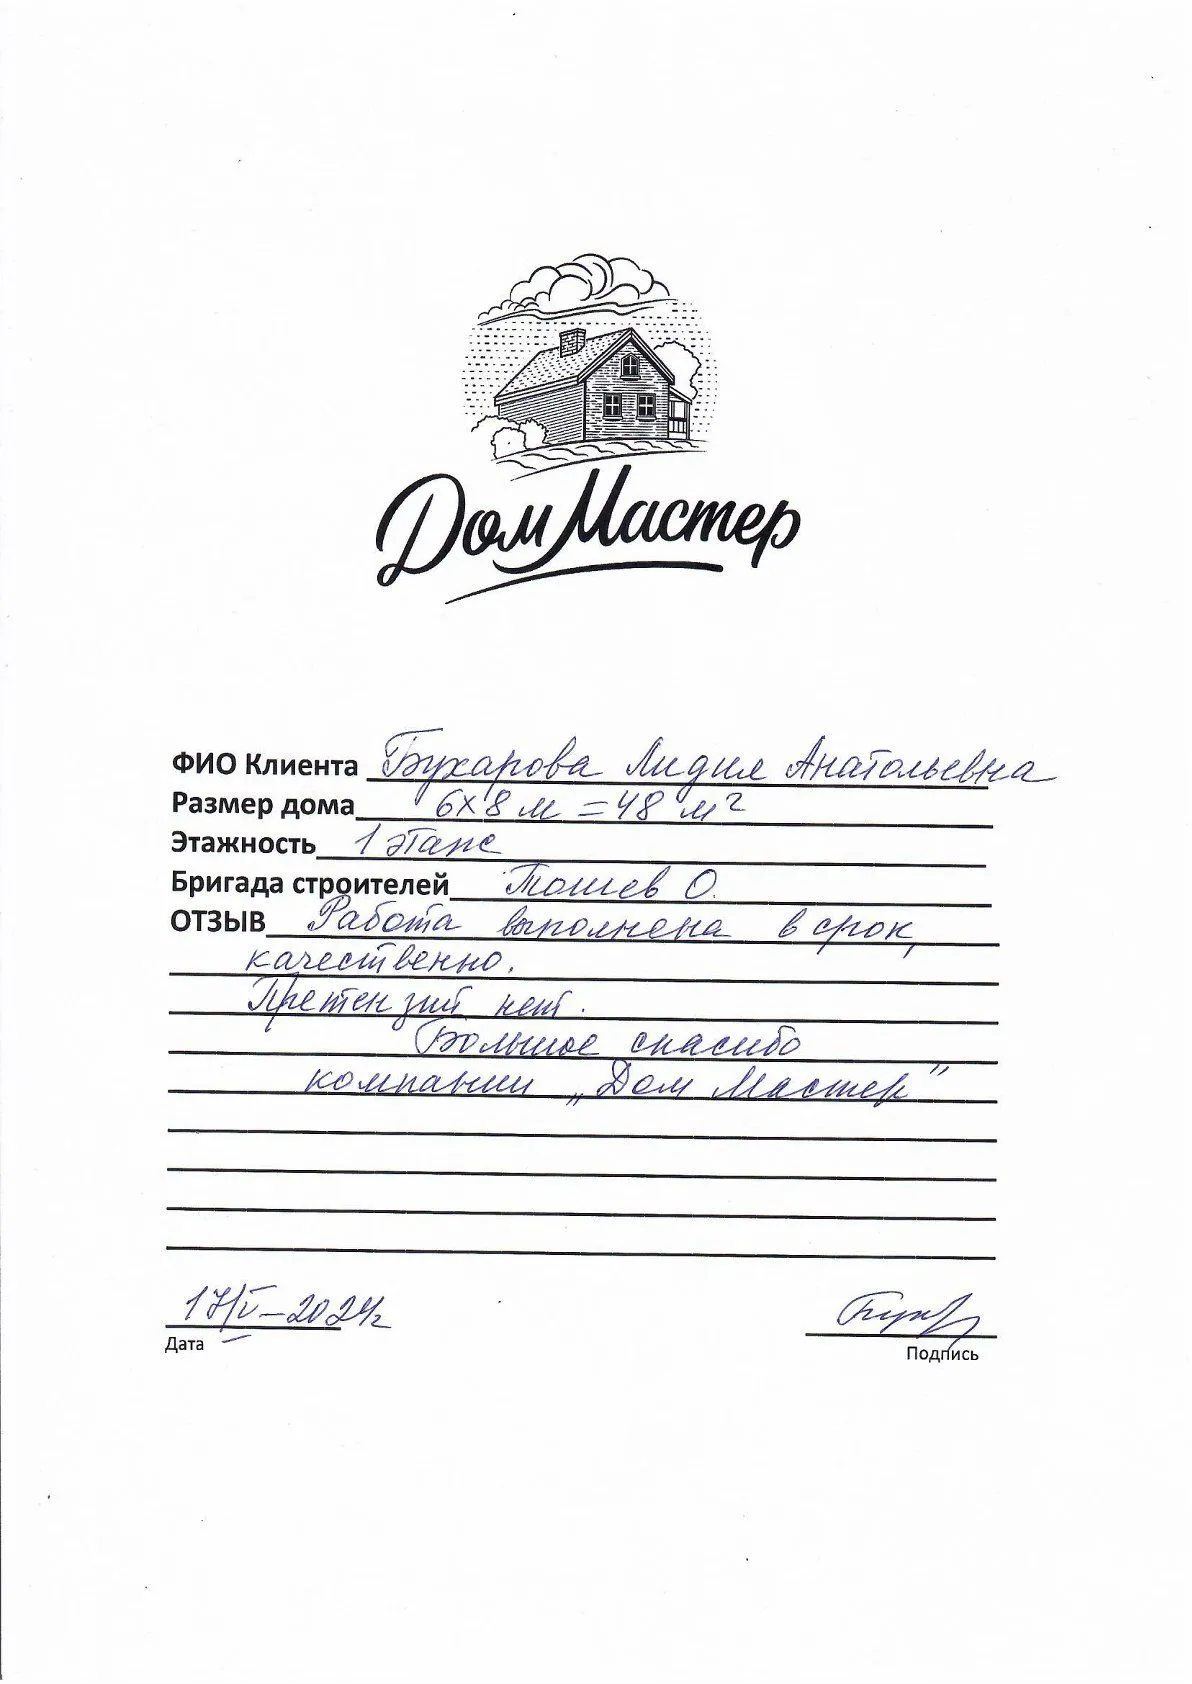 Дом Мастер
ФИО Клиента Бухарова Лидия Анатольевна
Размер дома 6х8 м = 48 м²
Этажность 1 этаж
Бригада строителей Тошев О.
ОТЗЫВ Работа выполнена в срок,
качественно.
Претензий нет.
Большое спасибо
компании „Дом Мастер"
17/V-2024г
Дата
Подпись